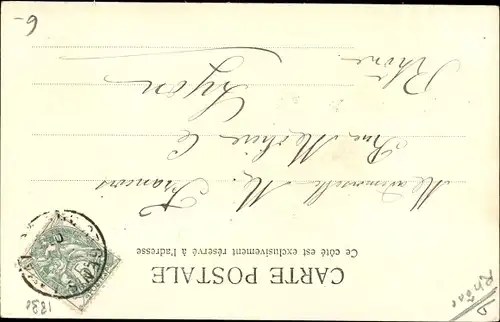 CARTE POSTALE
Ce côté est exclusivement réservé à l'adresse
Mademoiselle M. François
Rue Molière 6
Lyon
Rhône
6-
1330
Rhône